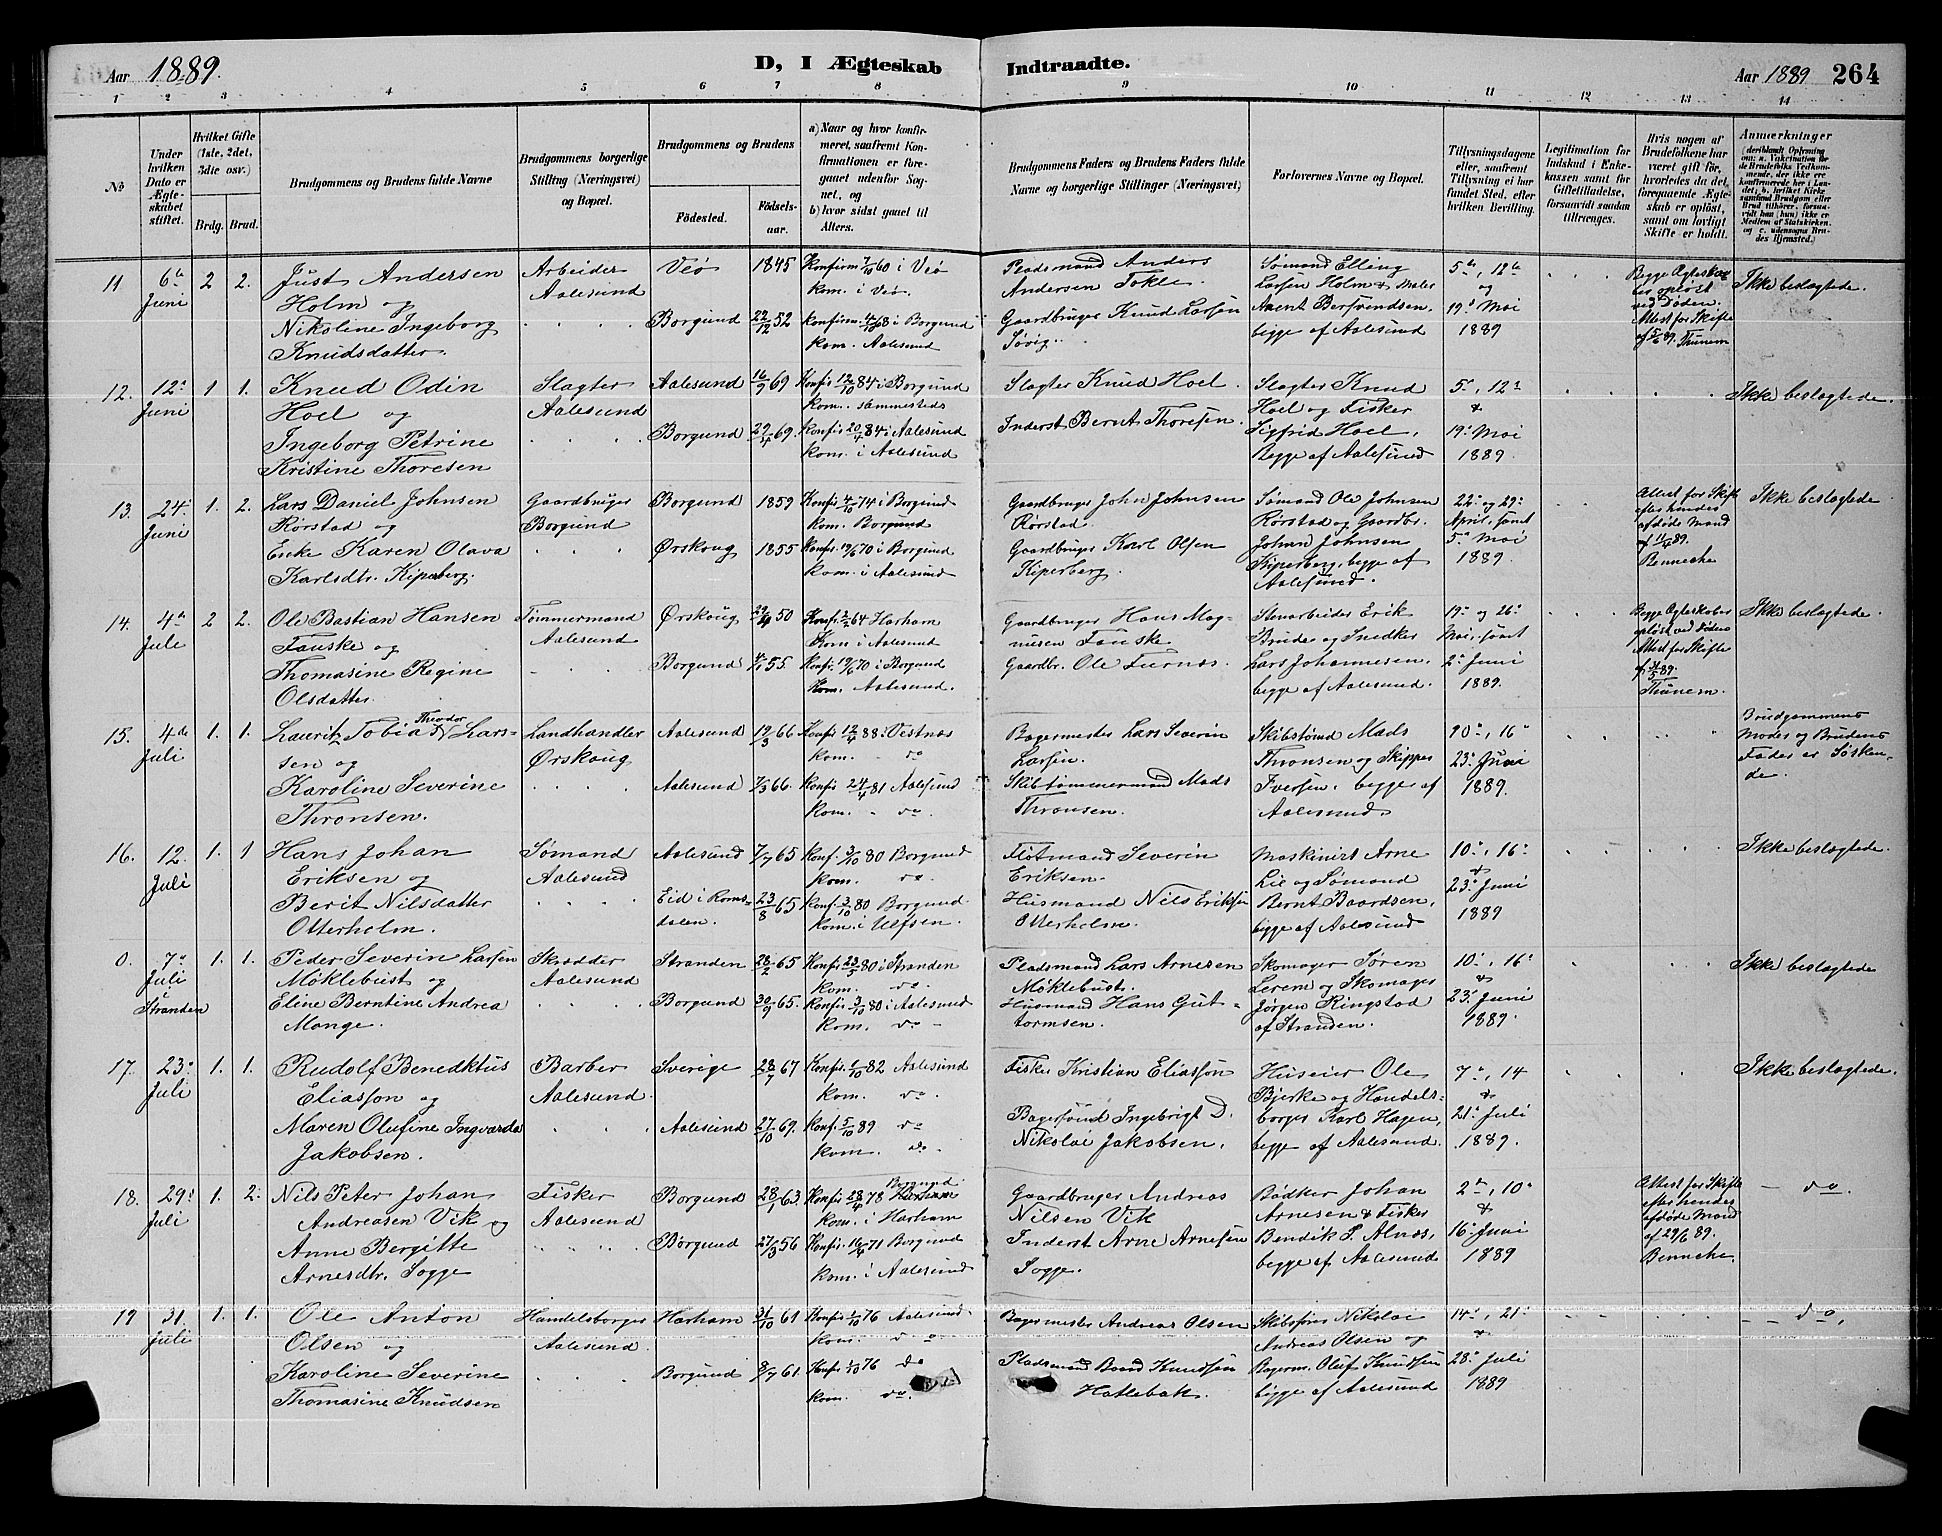 Aar 1889.
D, I Ægteskab Indtraadte.
Aar 1889 264
1 2 3 4 5 6 7 8 9 10 11 12 13 14
No
Under hvilken Dato er Ægteskabet stiftet.
Hvilket Gifte (1ste, 2det, 3die osv.)
Brdg. Brud.
Brudgommens og Brudens fulde Navne
Brudgommens borgerlige Stilling (Næringsvei) og Bopæl.
Brudgommens og Brudens
Fødested. Fødselsaar.
a) Naar og hvor konfirmeret, saafremt Konfirmationen er foregaaet udenfor Sognet, og
b) hvor sidst gaaet til Alters.
Brudgommens Faders og Brudens Faders fulde Navne og borgerlige Stillinger (Næringsvei)
Forlovernes Navne og Bopæl.
Tillysningsdagene eller, saafremt Tillysning ei har fundet Sted, efter hvilken Bevilling.
Legitimation for Indskud i Enkekassen samt for Giftetilladelse, forsaavidt saadan tiltrænges.
Hvis nogen af Brudefolkene har været gift før, hvorledes da det foregaaende Ægteskab er opløst, samt om lovligt Skifte er holdt.
Anmærkninger
11 6te Juni 2 2.
Just Andersen
Holm og
Nikoline Ingeborg
Knudsdatter.
Arbeider
Aalesund
Veø 1845
Borgund 22/12 52
Konfirm 7/10 60 i Veö
Kom. i Veö.
Konfirm. 4/10 68 i Borgund
Kom. Aalesund
Pladsmand Anders
Andersen Tokle.
Gaardbruger Knud Larsen
Søvig.
Sømand Elling
Larsen Holm & Maler
begge af Aalesund
5te, 12te
og
19de Mai
1889
Begge Ægteskaber opløst
ved Døden.
Attest for Skifte
af 5/6 89. Thunem
Ikke beslægtede.
12. 12te Juni 1 1.
Knud Odin
Hoel og
Ingeborg Petrine
Kristine Thoresen
Slagter
Aalesund
Aalesund 16/9 69
Borgund 29/4 69.
Konfir. 12/10 84 i Borgund
Kom. sammesteds
Konfir. 20/4 84 i Aalesund
Kom. i Aalesund
Slagter Knud Hoel.
Inderst Bernt Thoresen.
Slagter Knud
Hoel og Fisker
Sigfrid Hoel.
Begge af Aalesund
5te, 12te
&
19de Mai
1889.
Ikke beslægtede.
13. 24. Juni 1. 2.
Lars Daniel Johnsen
Rørstad og
Enke Karen Olava
Karlsdtr. Kiperberg.
Gaardbruger
Borgund
Borgund 1859
Ørskoug 1855
Konfir. 4/10 74 i Borgund
Kom. Borgund
Konfir. 19/6 70 i Borgund
Kom. i Aalesund
Gaardbruger John Johnsen
Rørstad.
Gaardbruger Karl Olsen
Kiperberg.
Sømand Ole Johnsen
Rørstad og Gaardbr.
Johan Johnsen
Kiperberg, begge af
Aalesund.
22de og 29de
April, samt
5te Mai
1889.
Attest for Skifte
efter hendes
afdøde Mand
af 11/4 89.
Benneche
Ikke beslægtede
14. 4de Juli 2 2.
Ole Bastian Hansen
Fauske og
Thomasine Regine
Olsdatter.
Tømmermand
Aalesund
Ørskoug 29/4 50
Borgund 4/1 55.
Konfir. 3/7 64 Harham
Kom i Aalesund
Konfir. 19/6 70 i Borgund
Kom. Aalesund.
Gaardbruger Hans Magnusen Fauske
Gaardbr. Ole Furnæs.
Stenarbeider Erik
Brude og Snedker
Lars Johannesen,
begge af Aalesund.
19de og 26de
Mai, samt
2den Juni
1889.
Begge Ægteskaber
opløst ved Døden
Attest for Skifte
af 31/5 89.
Thunem.
Ikke beslægtede.
15. 4de Juli 1. 1.
Lauritz Tobias Theodor Larsen og
Karoline Severine
Thronsen.
Landhandler
Ørskoug
Aalesund 19/3 66
Aalesund 7/3 66.
Konfir 12/4 88 i Vestnes
Kom. do
Konfir 24/4 81 Aalesund
Kom. do
Bagermester Lars Severin
Larsen.
Skibstømmermand Mads
Thronsen.
Skibstømd Mads
Thronsen og Skipper
Iversen, begge af
Aalesund.
10de, 16de
23de Juni
1889.
Brudgommens
Moder og Brudens
Fader er Søskende.
16. 12. Juli 1. 1
Hans Johan
Eriksen og
Berit Nilsdatter
Otterholm.
Sømand
Aalesund
Aalesund 7/7 65
Eid i Romsdalen. 23/8 65
Konf. 3/10 80 Borgund
Kom. do.
Konf. 3/10 80 Borgund
Kom. i Ulfsen.
Flotmand Severin
Eriksen.
Husmand Nils Eriksen
Otterholm.
Maskinist Arne
Lie og Sømand
Bernt Baardsen,
begge af Aalesund
10de, 16de
&
23de Juni
1889
Ikke beslægtede.
0. 7de Juli Stranden 1. 1.
Peder Severin Larsen
Möklebust og
Eline Berntine Andrea
Monge.
Skrædder
Aalesund
Stranden 28/2 65
Borgund 30/9 65.
Konfir 23/5 80 i Stranden
Kom. do.
Konfir. 3/10 80 i Aalesund
Kom. do
Pladsmand Lars Arnesen
Möklebust.
Husmand Hans Guttormsen.
Skomager Søren
Lerene og Skomager
Jørgen Ringstad
af Stranden.
10de, 16de
&
23de Juni
1889.
Ikke beslægtede
17. 23de Juli 1. 1.
Rudolf Benediktus
Eliasson og
Maren Olufine Ingvarda
Jakobsen.
Barber
Aalesund.
Sverige 28/7 67
Aalesund 27/10 69.
Konfir. 1/10 82 Aalesund
Kom. do.
Konf. 5/10 89 do
Kom. do.
Fisker Kristian Eliasson
Bagersvend Ingebrigt D.
Nikolai Jakobsen.
Huseier Ole
Bjerke og Handelsborger Karl Hagen,
begge af Aalesund.
7de, 14
&
21de Juli
1889.
Ikke beslægtede.
18. 29de Juli 1. 2.
Nils Peter Johan
Andreasen Vik og
Anne Bergitte
Arnesdtr. Sogge
Fisker
Aalesund
Borgund 28/1 63.
Borgund 27/3 56
Konfir. 28/4 78 Borgund
Kom. i Harham
Konfir. 16/4 71 Borgund
Kom. i Aalesund
Gaardbruger Andreas
Nilsen Vik
Inderst Arne Arnesen
Sogge.
Bødker Johan
Arnesen & Fisker
Bendik P. Alnæs,
begge af Aalesund
2de, 10de
&
16de Juni
1889
Attest for Skifte
efter hendes
afdøde Mand
af 29/6 89.
Benneche.
do.
19 31. Juli 1. 1.
Ole Anton
Olsen og
Karoline Severine
Thomasine Knudsen
Handelsborger
Aalesund.
Harham 31/10 61
Borgund 8/7 61.
Konfir 1/10 76 Aalesund
Kom. do
Konfir. 1/10 76 do
Kom. do.
Bagermester Andreas Olsen
Pladsmand Baard Knudsen
Hatlebak.
Skibsfører Nikolai
Andreas Olsen og
Bagerm. Oluf Knudsen
begge af Aalesund
14de, 21de
&
28de Juli
1889
do.